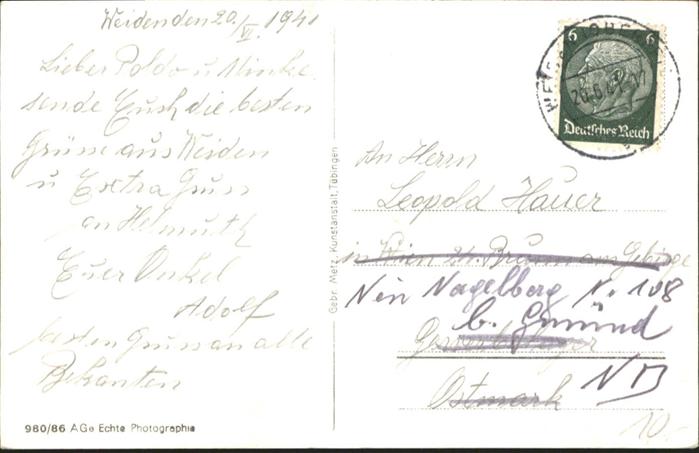 Weiden den 20/VI. 1941
Lieber Poldo u Minke
sende Euch die besten
Grüsse aus Weiden
u Extra Gruss
an Helmuth
Euer Onkel
Adolf
besten Gruss an alle
Bekanten
980/86 AGe Echte Photographie
Gebr. Metz, Kunstanstalt, Tübingen
6 6
Deutsches Reich
20.6.41
An Herrn
Leopold Hauer
in Wien 24. Brunn am Gebirge
Neu Nagelberg N. 108
b. Gmünd
Ostmark ND
10.-